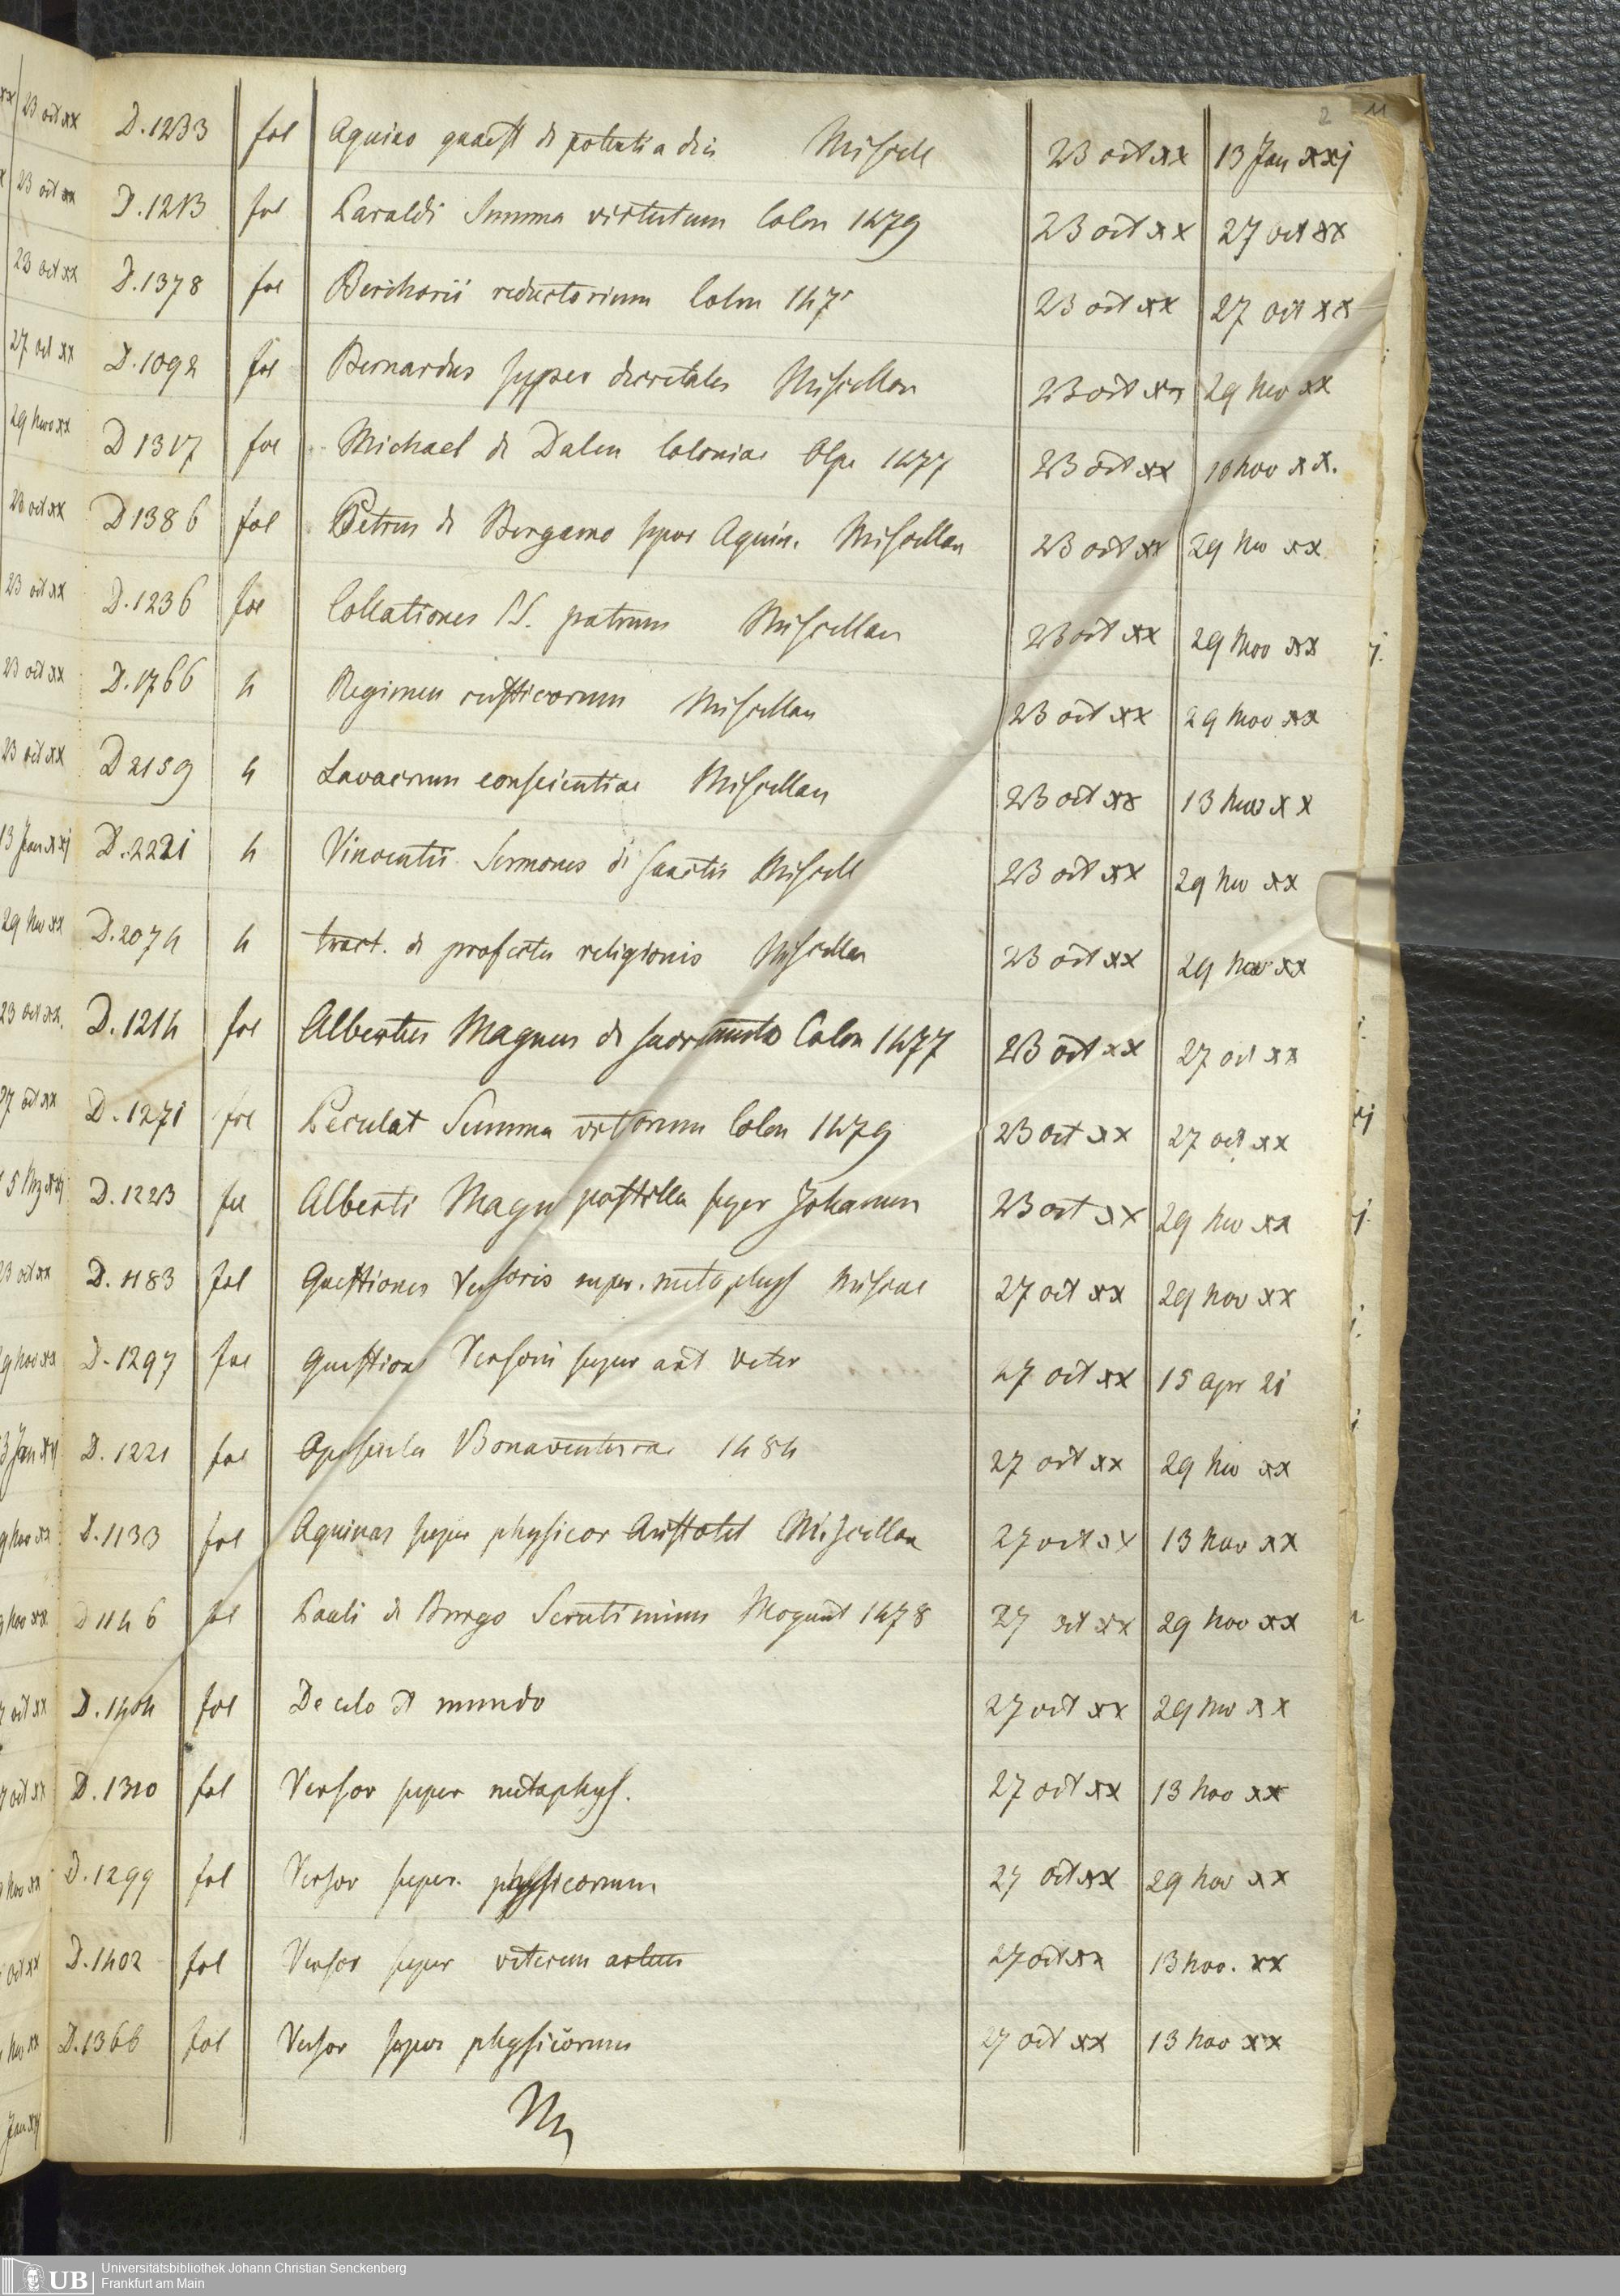 2 11
D.1233 fol Aquino quaest de potentia dei Miscell 23 oct xx 13 Jan xxj
D.1213 fol Paraldi Summa virtutum Colon 1479 23 oct xx 27 oct xx
D.1378 fol Berchorii reductorium Colon 147 23 oct xx 27 oct xx
D.1092 fol Bernardus super decretales Miscellan 23 oct xx 29 Nov xx
D 1317 fol Michael de Dalen Coloniae Alpe 1477 23 oct xx 10 Nov xx.
D 1386 fol Petrus de Bergamo super Aquin. Miscellan 23 oct xx 29 Nov xx
D.1236 fol Collationes SS. patrum Miscellan 23 oct xx 29 Nov xx
D.1766 4 Regimen rusticorum Miscellan 23 oct xx 29 Nov xx
D 2159 4 Lavacrum conscientiae Miscellan 23 oct xx 13 Nov xx
D.2221 4 Vincentii Sermones de sanctis Miscell 23 oct xx 29 Nov xx
D.2074 4 tract. de profectu religionis Miscellan 23 oct xx 29 Nov xx
D.1214 fol Albertus Magnus de sacramento Colon 1477 23 oct xx 27 oct xx
D.1271 fol Summa vitiorum Colon 1479 23 oct xx 27 oct xx
D.1223 fol Alberti Magni postilla super Johannem 23 oct xx 29 Nov xx
D.1183 fol Questiones Versoris super. metaphys Miscell 27 oct xx 29 Nov xx
D.1297 fol Questiones Versoris super art veter 27 oct xx 15 apr 21
D.1221 fol Opuscula Bonaventurae 1484 27 oct xx 29 Nov xx
D.1133 fol Aquinas super physicor Aristotel Miscellan 27 oct xx 13 Nov xx
D 1146 fol Pauli de Burgo Scrutinium Mogunt 1478 27 oct xx 29 Nov xx
D.1404 fol De celo et mundo 27 oct xx 29 Nov xx
D.1310 fol Versor super metaphys. 27 oct xx 13 Nov xx
D.1299 fol Versor super. physicorum 27 oct xx 29 Nov xx
D.1402 fol Versor super veterem artem 27 oct xx 13 Nov. xx
D.1366 fol Versor super physicorum 27 oct xx 13 Nov xx
UB Universitätsbibliothek Johann Christian Senckenberg
Frankfurt am Main